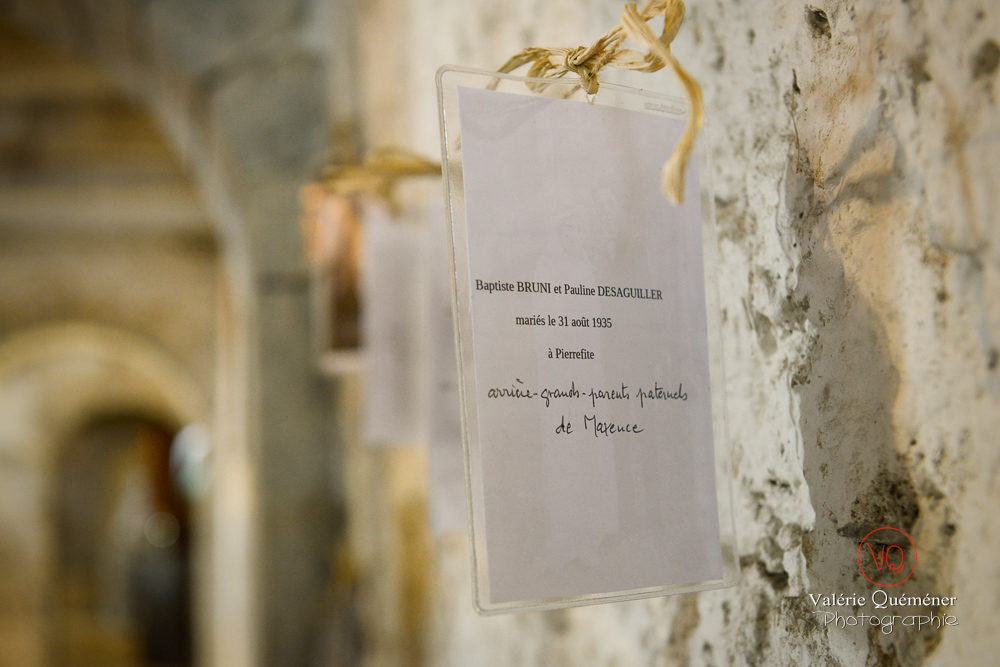 Baptiste BRUNI et Pauline DESAGUILLER
mariés le 31 août 1935
à Pierrefite
arrière-grands-parents paternels
de Maxence
VQ
Valérie Quéméner
Photographie